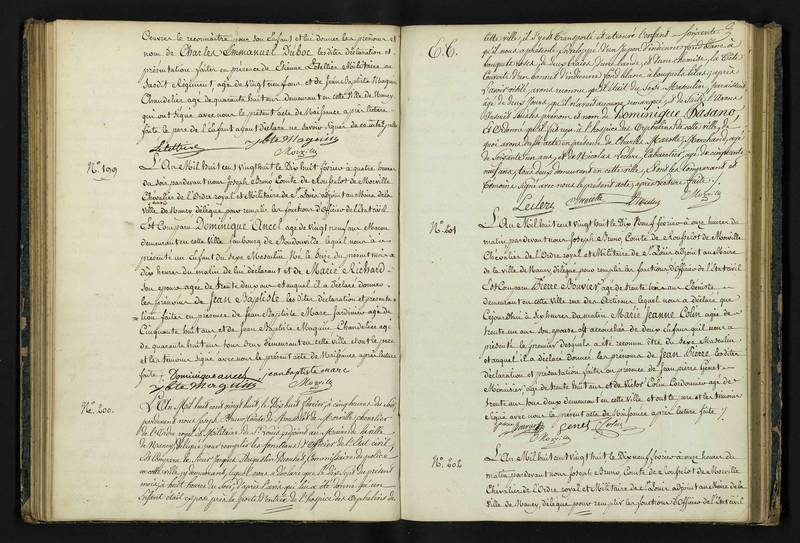 Oeuvres le reconnaitre pour son Enfant et lui donner les prénoms et
nom de Charles Emmanuel Duboc les dites déclaration et
présentation faites en présence de Etienne Letellier Militaire au
Susdit Régiment agé de Vingt neuf ans et de Jean Baptiste Maguin
Chandelier agé de quarante huit ans demeurant en cette Ville de Nancy
qui ont signé avec nous le présent acte de Naissance après lecture
faite le père de l'enfant ayant déclaré ne savoir signer
Letellier Jbte Maguin
Morville
N.° 199
L'An Mil huit cent vingt huit le Dix huit février à quatre heures
du soir pardevant nous Joseph Bruno Comte de Rousselot de Morville
Chevalier de l'Ordre royal et Militaire de St Louis adjoint au Maire de la
Ville de Nancy délégué pour remplir les fonctions d'Officier de l'Etat civil
Est Comparu Dominique Ancel agé de Vingt neuf ans Macon
demeurant en cette Ville faubourg de Boudonville lequel nous a
présenté un Enfant du sexe Masculin Né le Seize du présent mois à
dix heures du matin de lui déclarant et de Marie Richard
Son épouse agée de trente deux ans et auquel il a déclaré donner
les prénoms de Jean Baptiste les dites déclaration et présenta
tion faites en présence de Jean Baptiste Marc Jardinier agé de
Cinquante huit ans et de Jean Baptiste Maguin Chandelier agé
de quarante huit ans tous deux demeurant en cette ville et ont le père
et les témoins signé avec nous le présent acte de Naissance après lecture
faite
Dominique ancel jean baptiste marc
Jbte Maguin Morville
N.° 200.
L'An Mil huit cent vingt huit le Dix huit février, à cinq heures du soir
pardevant nous Joseph Bruno Comte de Rousselot de Morville chevalier
de l'Ordre royal & Militaire de St Louis adjoint au Maire de la ville
de Nancy, délégué pour remplir les fonctions d'Officier de l'Etat civil;
Est Comparu le Sieur Jacques Augustin Commissaire de police
en cette ville y demeurant, lequel nous a déclaré que le Dix Sept du présent
mois à huit heures du Soir, d'après l'avis qui lui a été donné qu'un
Enfant était exposé près la porte d'entrée de l'hospice des Orphelins de
cette ville, il s'y est transporté et a trouvé l'enfant
qu'il nous a présenté, enveloppé d'un jupon d'indienne fond blanc à
bouquets roses, de deux Une chemise, la tête
couverte d'un bonnet d'indienne fond blanc à bouquets lilas; après
l'avoir visité, avons reconnu qu'il était du sexe Masculin, paraissant
agé de deux jours, qu'il n'avait aucune marque; de suite l'avons
inscrit sous les prénom et nom de Dominique Basano,
et Ordonné qu'il fût remis à l'hospice des Orphelins de cette ville, de
quoi avons dressé acte en présence de Charles Mariotte, Marchand, agé
de soixante un ans, et de Nicolas Leclerc, Cabaretier, agé de cinquante
neuf ans, tous deux demeurant en cette ville, et ont les Comparant et
témoins signé avec nous le présent acte, après lecture faite /.
Leclerc Mariotte Morville
N.° 201
L'An Mil huit cent vingt huit le Dix Neuf février à onze heures du
matin pardevant nous Joseph Bruno Comte de Rousselot de Morville
Chevalier de l'Ordre royal et Militaire de St Louis adjoint au Maire
de la ville de Nancy délégué pour remplir les fonctions d'Officier de l'Etat civil
Est Comparu Pierre Bouvier agé de trente trois ans Ebéniste
demeurant en cette ville rue des Artisans lequel nous a déclaré que
Cejourd'hui à six heures du matin Marie Jeanne Colin agée de
trente un ans son épouse est accouchée de deux Enfans qu'il nous a
présenté le premier desquels a été reconnu être du sexe Masculin
et auquel il a déclaré donner les prénoms de Jean Pierre les dites
déclaration et présentation faites en présence de Jean pierre Genet
Menuisier agé de trente huit ans et de Victor Colin Cordonnier agé de
trente un ans tous deux demeurant en cette ville et ont le père et les témoins
signé avec nous le présent acte de Naissance après lecture faite /.
Bouvier Genet Colin
Morville
N.° 202
L'An Mil huit cent vingt huit le Dix neuf février à onze heures du
matin pardevant nous Joseph Bruno Comte de Rousselot de Morville
Chevalier de l'Ordre royal et Militaire de St Louis adjoint au Maire de la
Ville de Nancy, délégué pour remplir les fonctions d'Officier de l'Etat civil